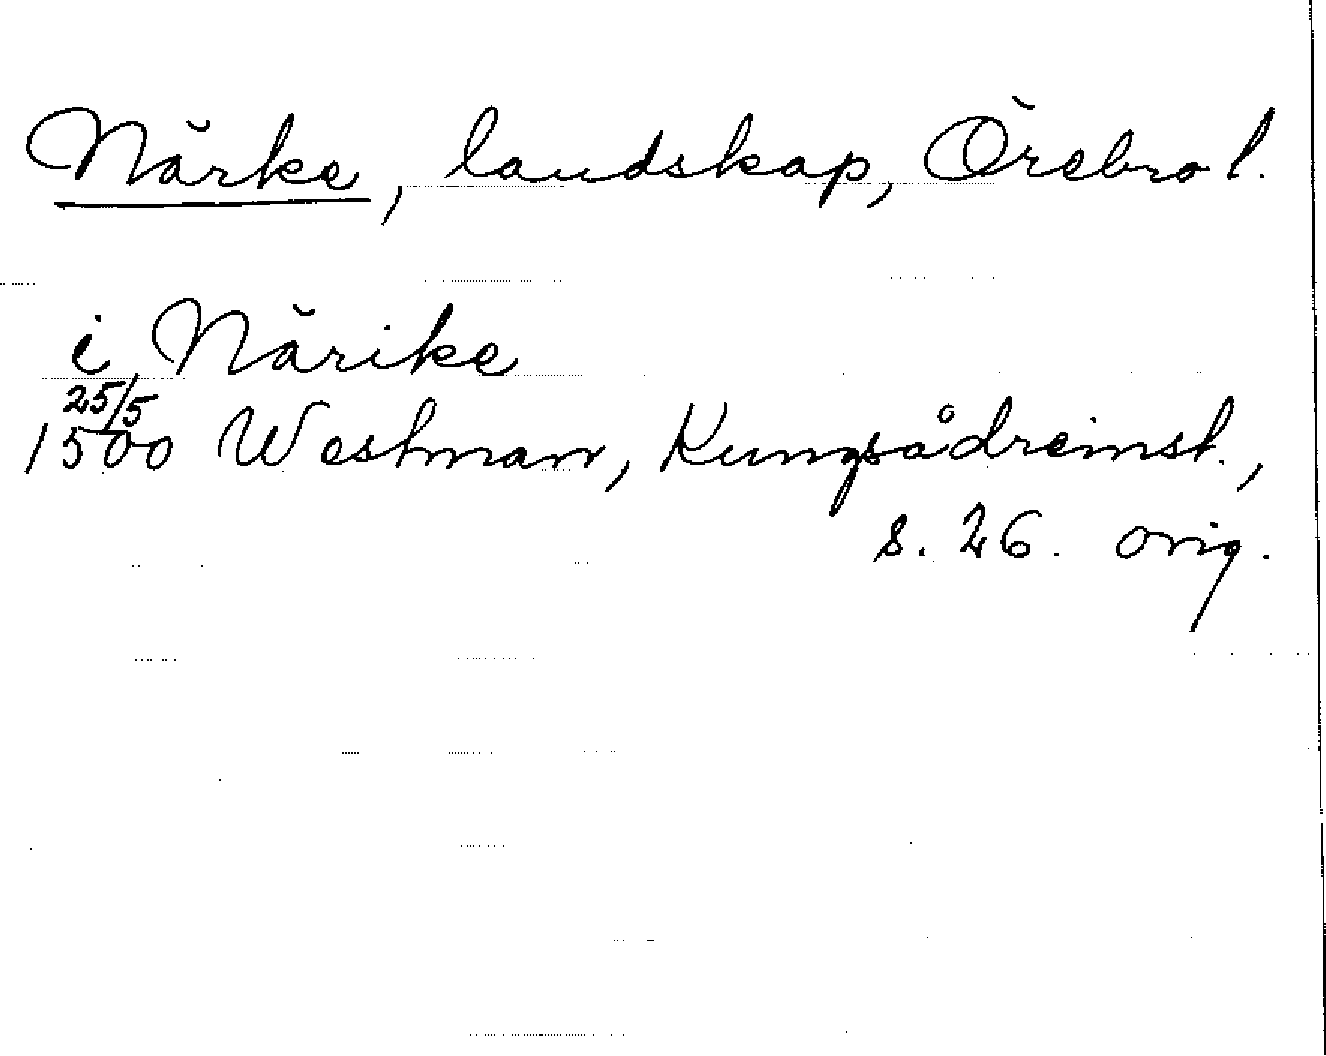 Närke, landskap, Örebro l.
i Närike
25/5
1500 Westman, Kungsådreinst.,
s. 26. orig.